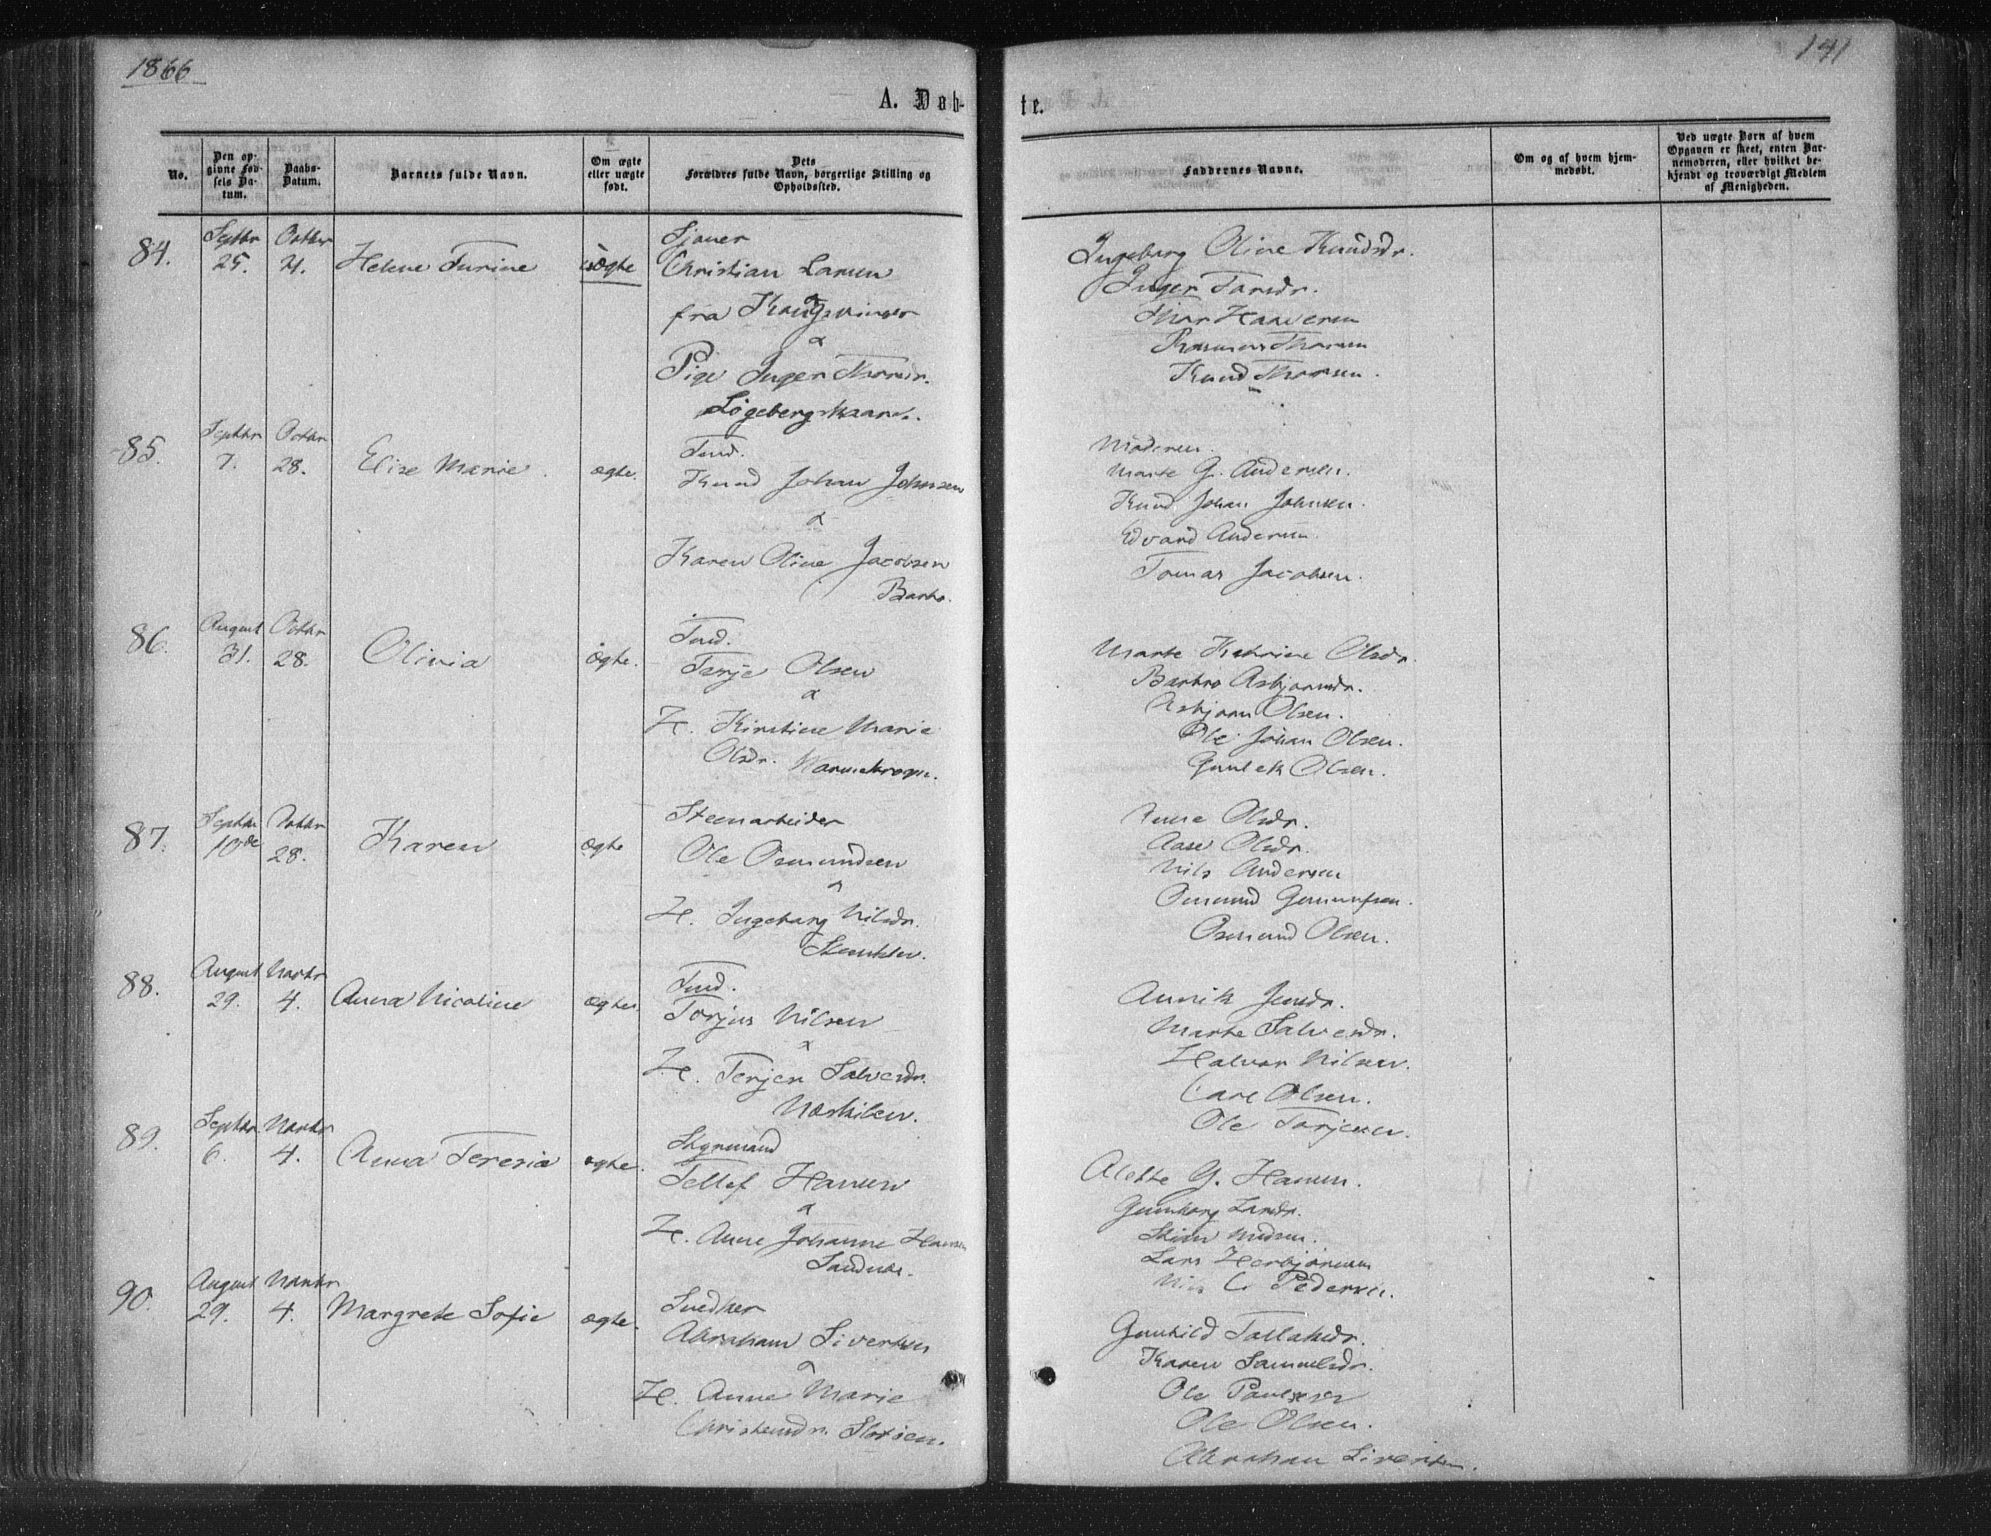 1866
141
A. Døb-
te.
No.
Den op-
givne Fød-
sels Da-
tum.
Daabs-
Datum.
Barnets fulde Navn.
Om ægte
eller uægte
født.
Dets
Forældres fulde Navn, borgerlige Stilling og
Opholdssted.
Faddernes Navne.
Om og af hvem hjem-
medøbt.
Ved uægte Børn af hvem
Opgaven er skeet, enten Bar-
nemoderen, eller hvilket be-
kjendt og troværdigt Medlem
af Menigheden.
84.
Septbr
25.
Octbr
21.
Helene Turine
uægte
Sjauer
Christian Larsen
fra Kongsvinger
&
Pige Inger Thorsdr.
Løgebergskaaret.
Ingeborg Oline Knudsdr.
Inger Tarsdr.
Thor Haaversen
Rasmus Thorsen
Knud Thorsen.
85.
Septbr
7.
Octbr
28.
Elise Marie.
ægte.
Tind.
Knud Johan Johnsen
&
Karen Oline Jacobsen
Barbo.
Moderen.
Marte G. Andersen.
Knud Johan Johnsen.
Edvard Andersen.
Tomas Jacobsen.
86.
August
31.
Octbr
28.
Olivia
ægte.
Tind.
Terje Olsen
&
H. Kirstine Marie
Olsdr.
Marte Katrine Olsdr.
Barbro Asbjørnsdr.
Asbjørn Olsen.
Ole Johan Olsen.
Gunlek Olsen.
87.
Septbr
10de
Octbr
28.
Karen
ægte
Steenarbeider
Ole Osmundsen
&
H. Ingeborg Nilsdr.
Steenkler.
Anne Olsdr.
Aase Olsdr.
Nils Andersen
Osmund Gunnufsen.
Osmund Olsen.
88.
August
29.
Novbr
4.
Anna Nicoline
ægte
Tind.
Torjus Nilsen
&
H. Terjer Salvesdr.
Næskilen.
Annik Jensdr.
Marte Salvesdr.
Halvor Nilsen.
Carl Olsen.
Ole Torjesen.
89.
Septbr.
6.
Novbr
4.
Anna Teresia
ægte.
Styrmand
Tellef Hansen
&
H. Anne Johanne Hansen
Sandnæs.
Alette G. Hansen.
Gunborg Larsdr.
Lars Herbjørnsen
Nils C Pedersen.
90.
August
29.
Novbr
4.
Margrete Sofie
ægte.
Snedker
Abraham Sivertsen
&
H. Anne Marie
Christensdr. Slotøen.
Gunhild Tallaksdr.
Karen Samuelsdr.
Ole Paulsen
Ole Olsen.
Abraham Sivertsen.